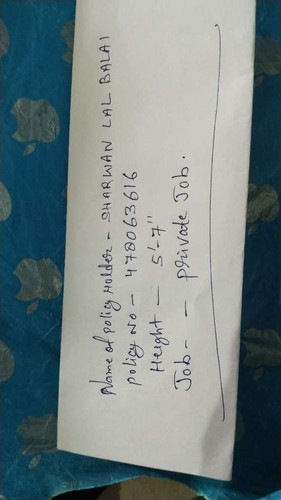 Name of policy Holder - SHARWAN LAL BALAI
policy No - 478063616
Height - 5'-7"
Job - - private Job.